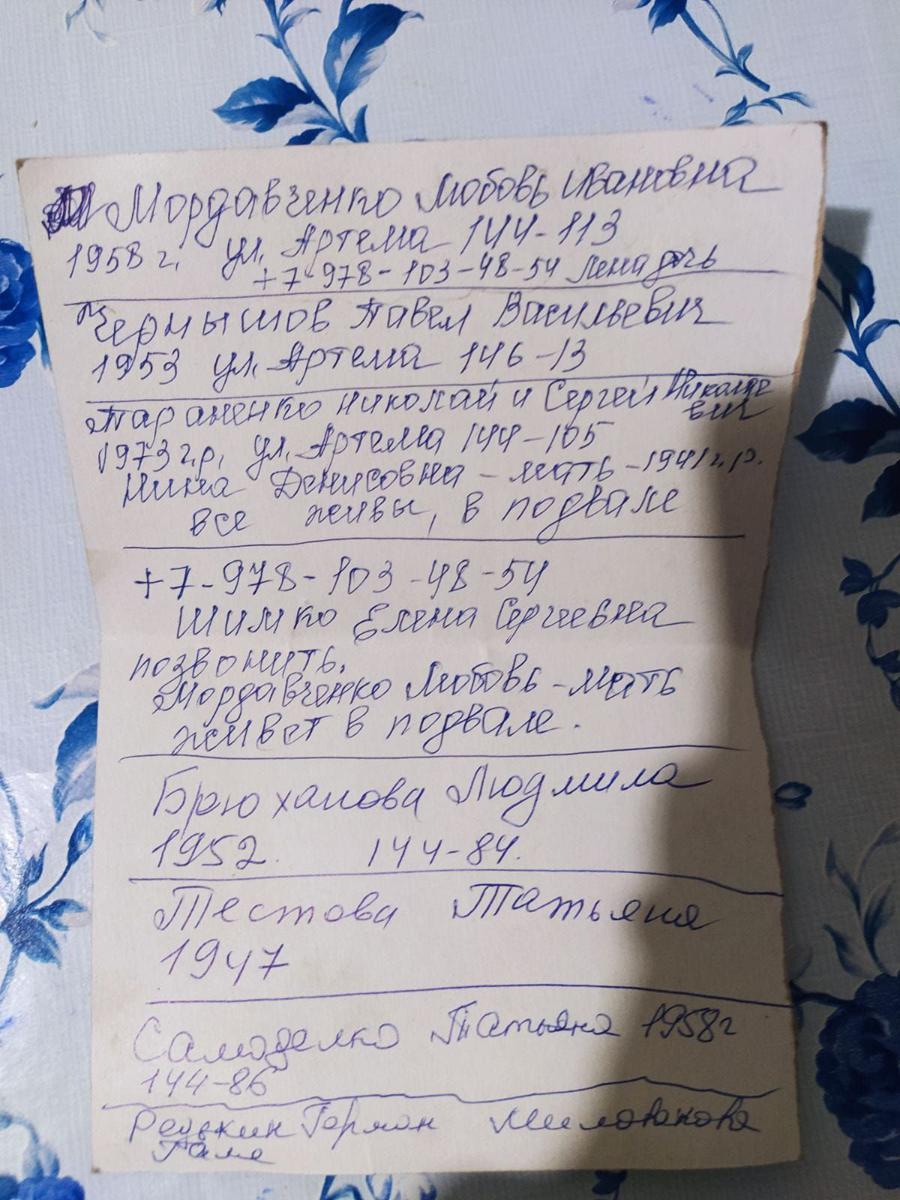 Мордавченко Любовь Ивановна
1958 г. ул. Артема 144-113
+7-978-103-48-54 Лена дочь
Чернышов Павел Васильевич
1953 ул. Артема 146-13
Тараненко Николай и Сергей Николаевич
1973 г.р. ул. Артема 144-105
Нина Денисовна - мать - 1941 г.р.
все живы, в подвале
+7-978-103-48-54
Шимко Елена Сергеевна
позвонить.
Мордавченко Любовь - мать
живет в подвале.
Брюханова Людмила
1952 144-84.
Тестова Татьяна
1947
Самоделко Татьяна 1958г
144-86
Редькин Герман Милованова
Галя